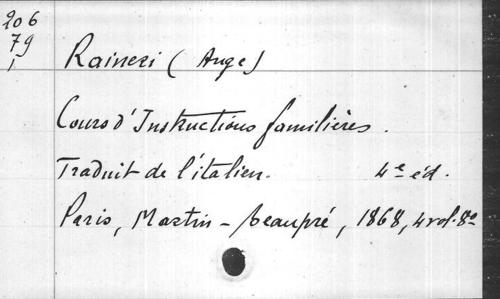 206
79
1
Raineri (Ange)
Cours d'Instructions familières.
Traduit de l'italien. 4e éd.
Paris, Martin-Beaupré, 1868, 4 vol. 8o